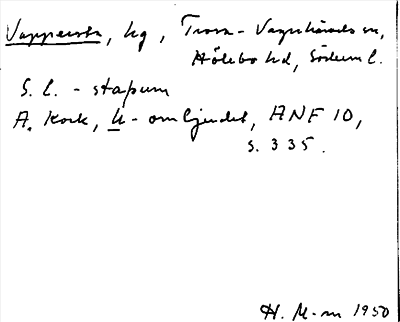 Vappersta, hg, Trosa-Vagnhärads sn,
Hölebo hd, Söderml.
S. l. - stapum
A. Kock, u-omljudet, ANF 10,
s. 335.
H. M-m 1950